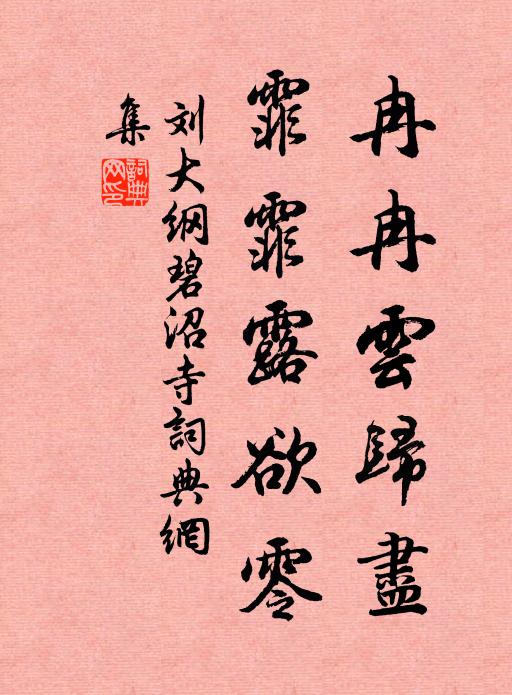 冉冉雲歸盡
霏霏露欲零
刘大纲碧沼寺詞典網
集
詞典
网印